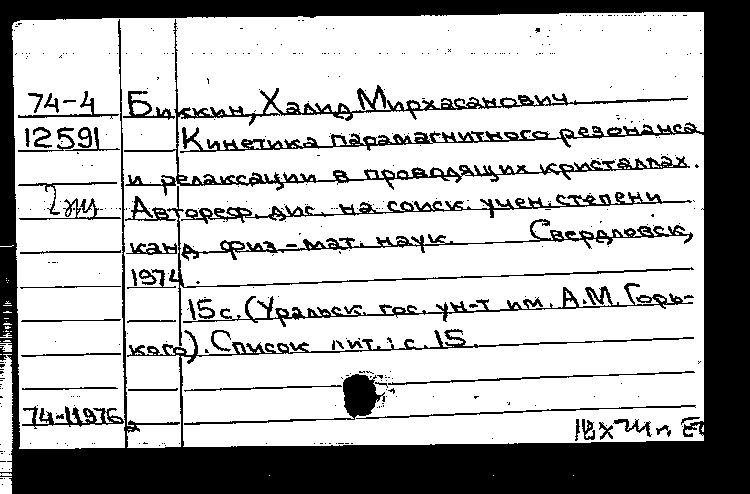 74-4 Биккин, Халид Мирхасанович.
12591 Кинетика парамагнитного резонанса
и релаксации в проводящих кристаллах.
Автореф. дис. на соиск. учен. степени
канд. физ.-мат. наук. Свердловск,
1974.
15 с. (Уральск. гос. ун-т им. А.М. Горь-
кого). Список лит.: с. 15.
74-11976